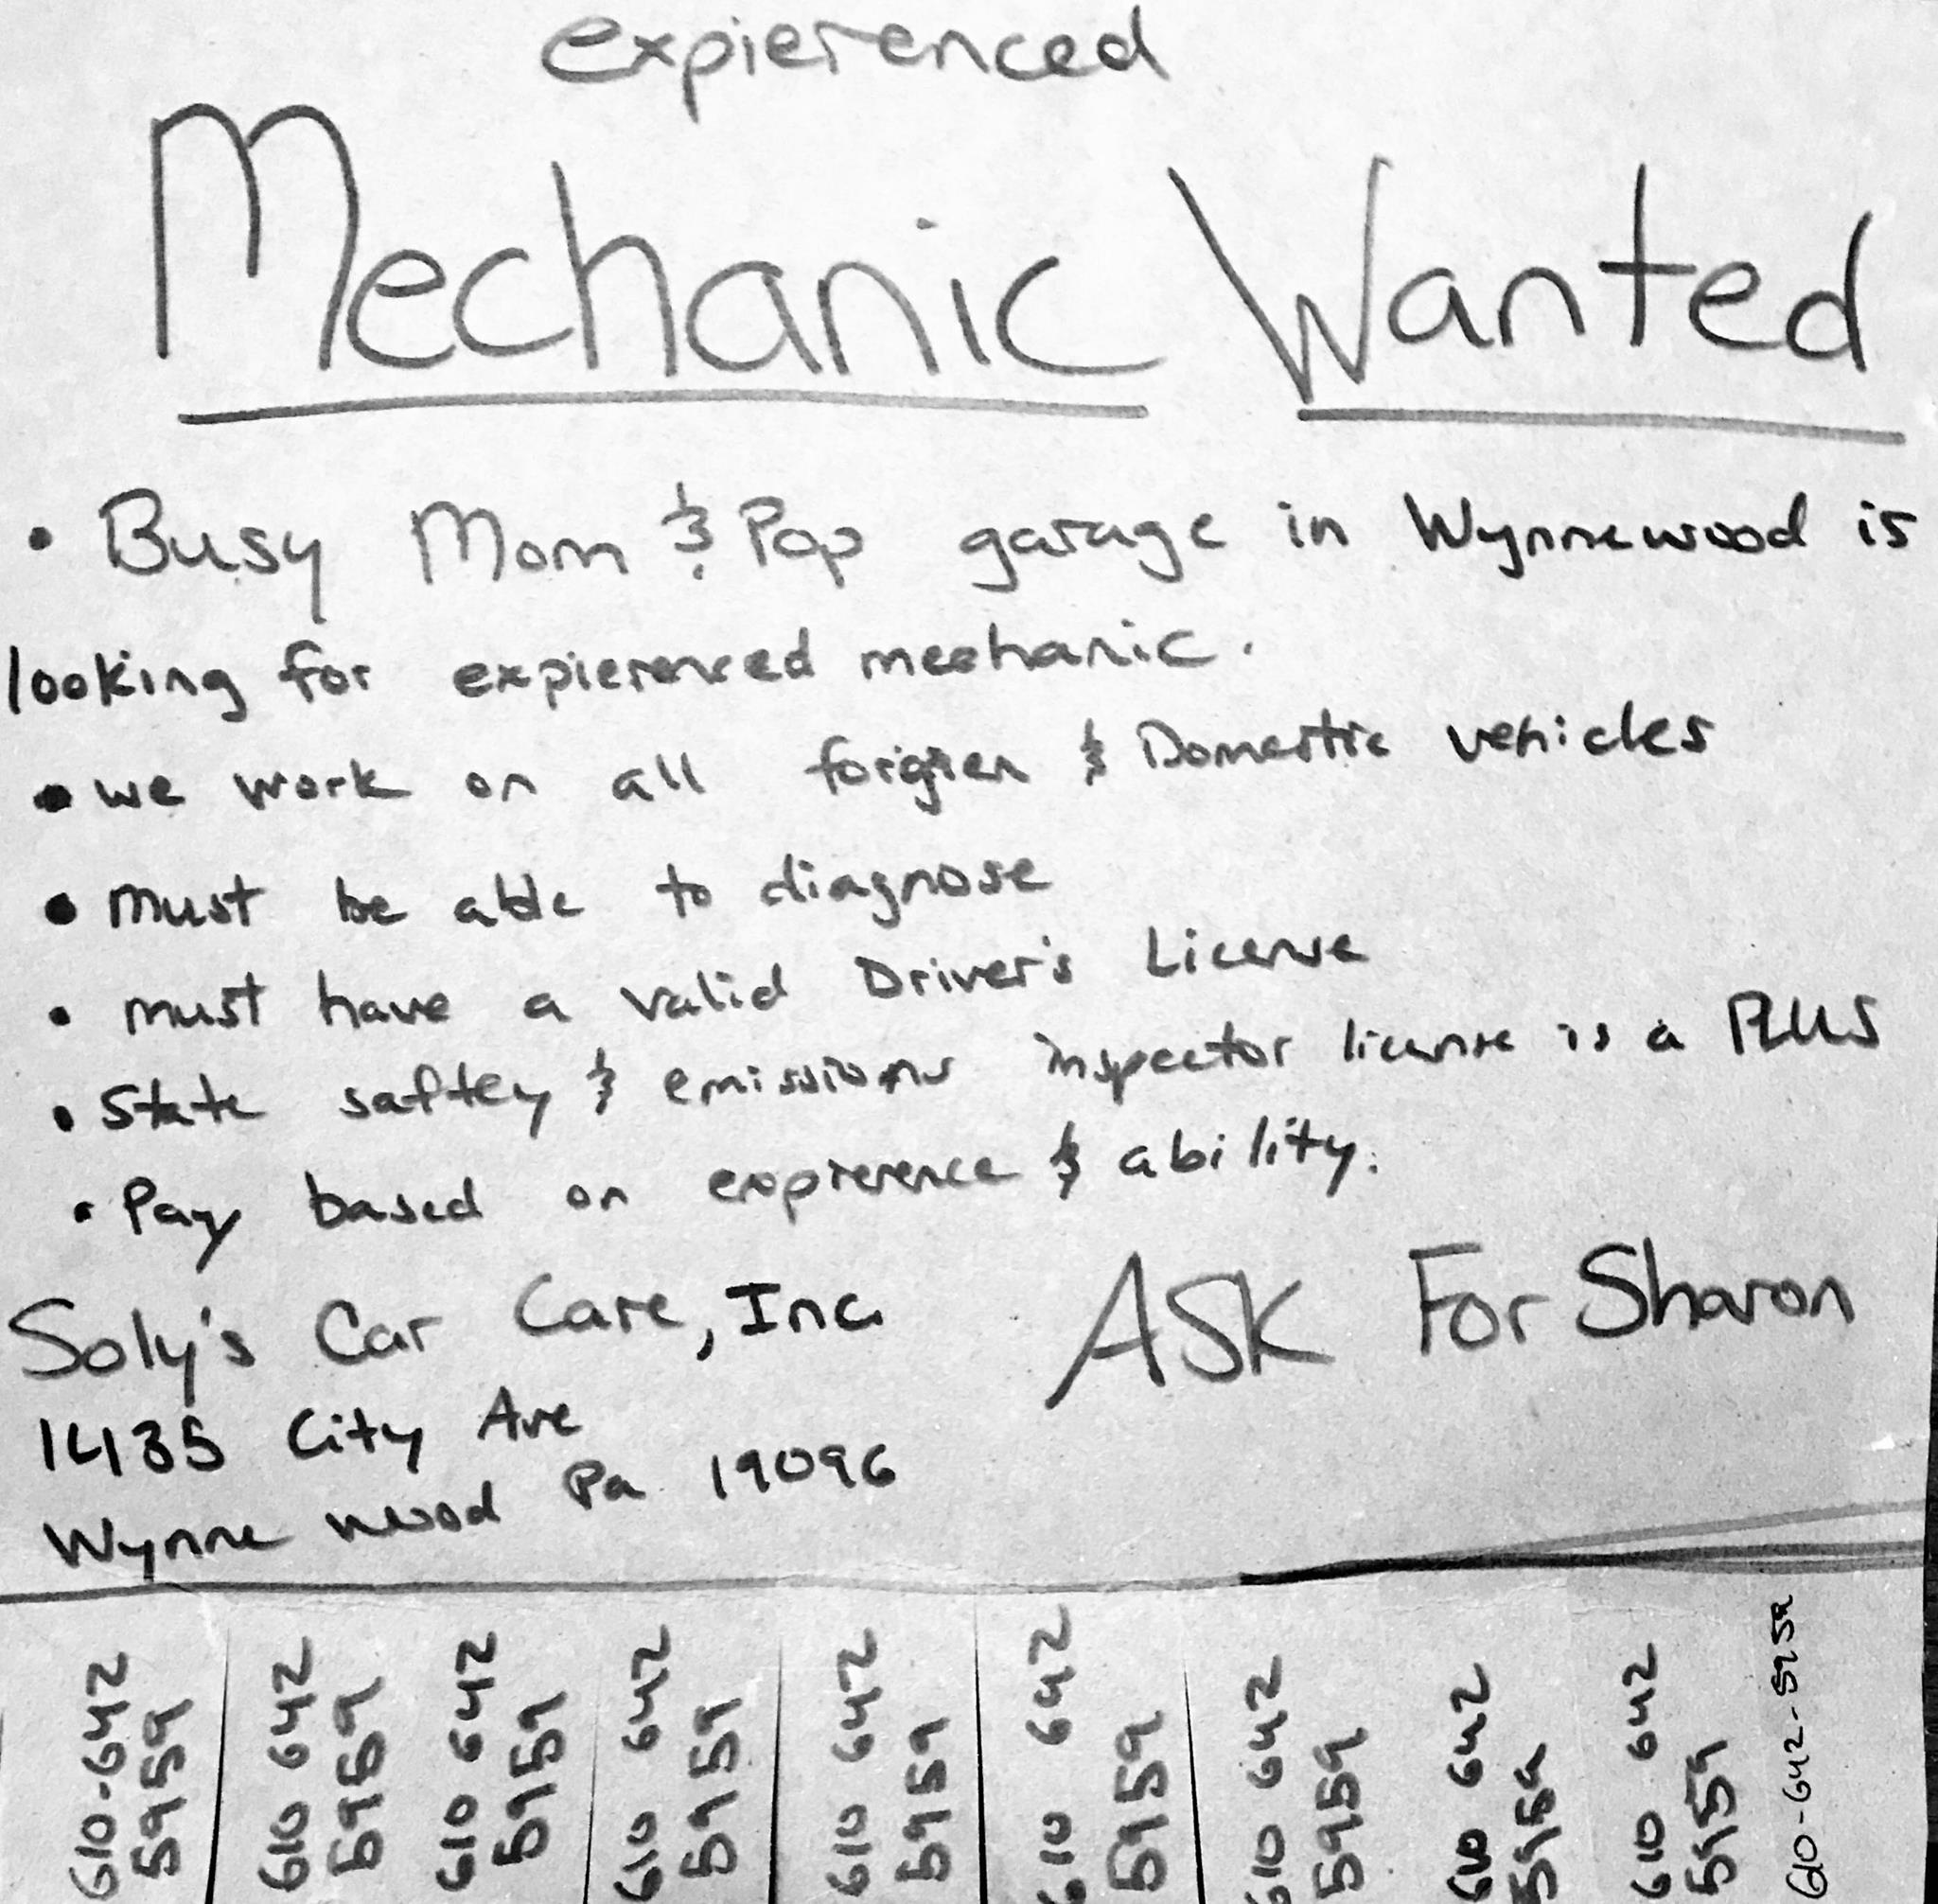 expierenced
Mechanic Wanted
• Busy Mom & Pop garage in Wynnewood is
looking for expierenced mechanic.
• we work on all forgien & Domestic vehicles
• must be able to diagnose
• must have a valid Driver's License
• State saftey & emissions inspector license is a PLUS
• Pay based on expierence & ability.
Soly's Car Care, Inc.
ASK For Sharon
1435 City Ave
Wynne wood Pa 19096
610-642
5959
610 642
5959
610 642
5959
610 642
5959
610 642
5959
610 642
5959
610 642
5959
610 642
5959
610 642
5959
610-642-5959